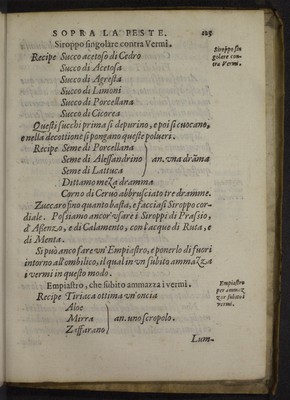 SOPRA LA PESTE. 125
Siroppo singolare contra Vermi.
Siroppo sin
golare con-
tra Vermi.
Recipe Succo acetoso di Cedro
Succo di Acetosa
Succo di Agresta
Succo di Limoni
Succo di Porcellana
Succo di Cicorea
Questi succhi prima si depurino, e poi si cuocano,
e nella decottione si pongano queste polueri.
Recipe Seme di Porcellana
Seme di Alessandrino } an. vna drāma
Seme di Lattuca
Dittamo meza dramma
Corno di Ceruo abbrusciato tre dramme.
Zuccaro fino quanto basta, e facciasi Siroppo cor-
diale. Possiamo ancor' vsare i Siroppi di Prasio,
d'Assenzo, e di Calamento, con l'acque di Ruta, e
di Menta.
Si può anco fare vn' Empiastro, e ponerlo di fuori
intorno all'ombilico, il qual in vn subito ammazza
i vermi in questo modo.
Empiastro, che subito ammazza i vermi.
Empiastro
per ammaz
zar subito i
vermi.
Recipe Tiriaca ottima vn'oncia
Aloe
Mirra } an. uno scropolo.
Zaffarano
Lum-